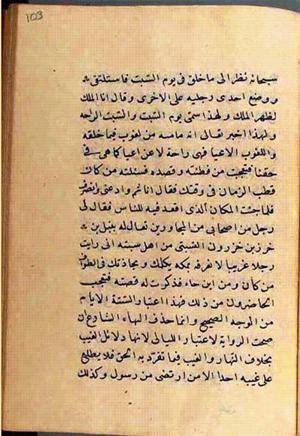 103
سبحانه نظر الى ما خلق فى يوم السبت فاستلقى
ووضع احدى رجليه على الاخرى وقال انا الملك
لظهر الملك ولهذا سمى يوم السبت والسبت الراحة
ولهذا اخبر تعالى انه ما مسه من لغوب فيما خلقه
واللغوب الاعيا فهى راحة لا عن اعيا كما هى فى
حقنا فتعجبت من فطنته وقصده فسئلته من كان
قطب الزمان فى وقتك فقال انا ثم ودعنى وانصرف
فلما جئت المكان الذى اقعد فيه للناس فقال لى
رجل من اصحابى من المجاورين يقال له نبيل بن
خزر بن خزرون السبتى من اهل سبته انى رايت
رجلا غريبا لا نعرفه بمكه يكلمك ويحادثك فى الطواف
من كان ومن اين جاء فذكرت له قصته فتعجب
الحاضرون من ذلك فهذا اعتبار الستة الايام
من الوجه الصحيح وانما حذف الهاء الشارع ان
صحت الرواية لاعتبار الليالى لانها دلائل الغيب
بخلاف النهار والغيب مما تفرد به الحق فلا يطلع
على غيبه احدا الا من ارتضى من رسول وكذلك